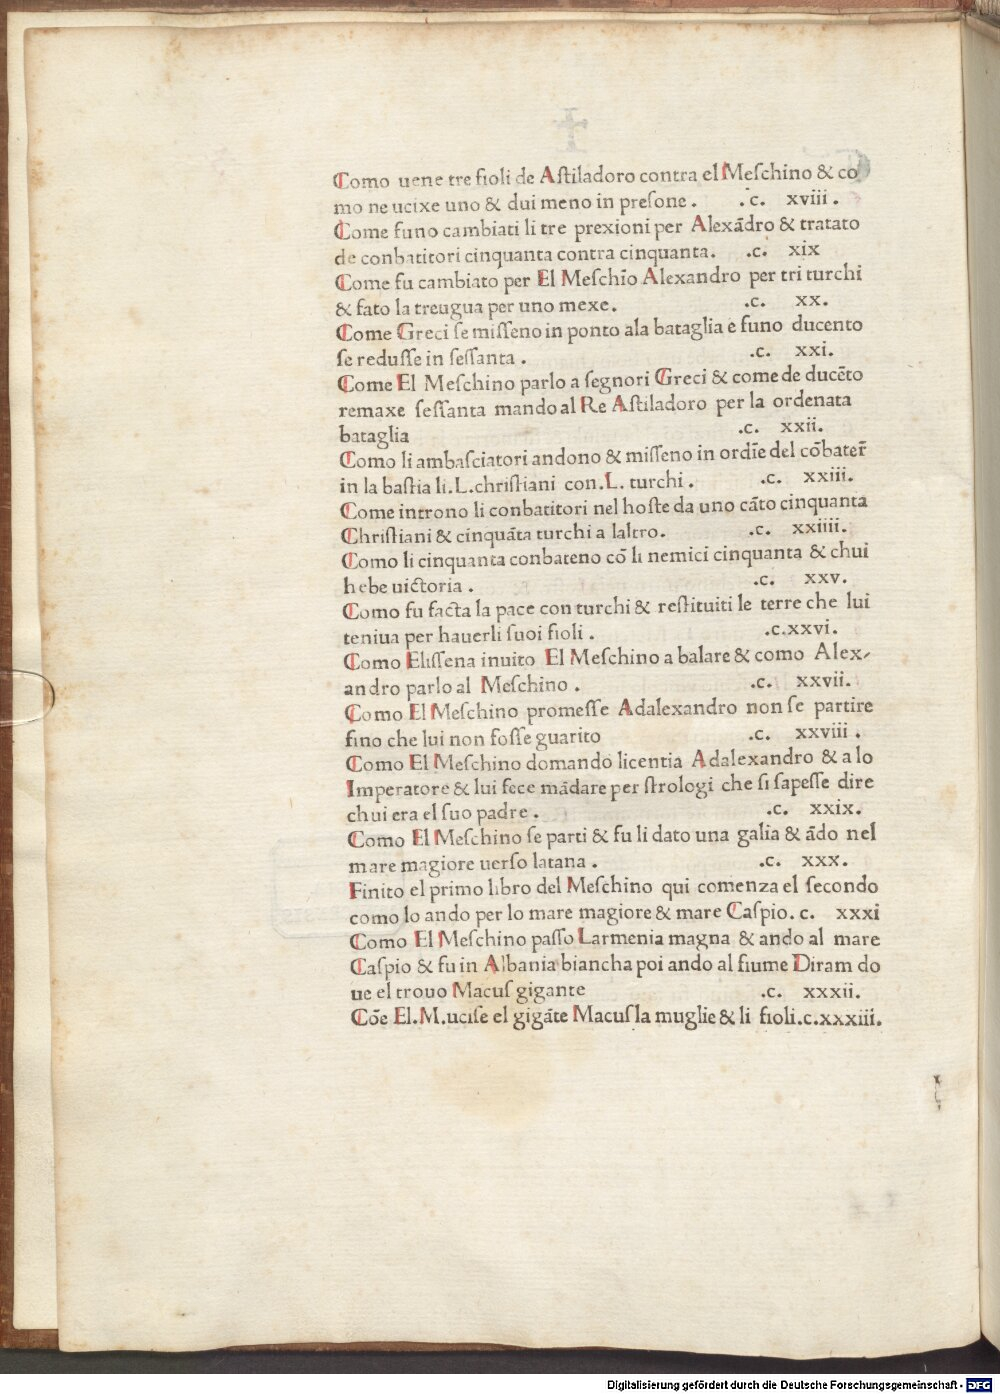 Como uene tre fioli de Aſtiladoro contra el Meſchino & co
mo ne ucixe uno & dui meno in preſone . .c. xviii .
Come funo cambiati li tre prexioni per Alexādro & tratato
de conbatitori cinquanta contra cinquanta. .c. xix
Come fu cambiato per El Meſchīo Alexandro per tri turchi
& fato la treugua per uno mexe. .c. xx.
Come Greci ſe miſſeno in ponto ala bataglia e funo ducento
ſe reduſſe in ſeſſanta . .c. xxi.
Come El Meſchino parlo a ſegnori Greci & come de ducēto
remaxe ſeſſanta mando al Re Aſtiladoro per la ordenata
bataglia .c. xxii.
Como li ambaſciatori andono & miſſeno in ordīe del cōbater̄
in la baſtia li.L.chriſtiani con.L. turchi . .c. xxiii.
Come introno li conbatitori nel hoſte da uno cāto cinquanta
Chriſtiani & cinquāta turchi a laltro. .c. xxiiii.
Como li cinquanta conbateno cō li nemici cinquanta & chui
hebe uictoria . .c. xxv.
Como fu facta la pace con turchi & reſtituiti le terre che lui
teniua per hauerli ſuoi fioli . .c.xxvi.
Como Eliſſena inuito El Meſchino a balare & como Alex-
andro parlo al Meſchino . .c. xxvii.
Como El Meſchino promeſſe Adalexandro non ſe partire
fino che lui non foſſe guarito .c. xxviii .
Como El Meſchino domando licentia Adalexandro & a lo
Imperatore & lui fece mādare per ſtrologi che ſi ſapeſſe dire
chui era el ſuo padre . .c. xxix.
Como El Meſchino ſe parti & fu li dato una galia & ādo nel
mare magiore uerſo latana . .c. xxx.
Finito el primo libro del Meſchino qui comenza el ſecondo
como lo ando per lo mare magiore & mare Caſpio. c. xxxi
Como El Meſchino paſſo Larmenia magna & ando al mare
Caſpio & fu in Albania biancha poi ando al fiume Diram do
ue el trouo Macuſ gigante .c. xxxii.
Cōe El.M.uciſe el gigāte Macuſ la muglie & li fioli.c.xxxiii.
Digitalisierung gefördert durch die Deutsche Forschungsgemeinschaft - DFG